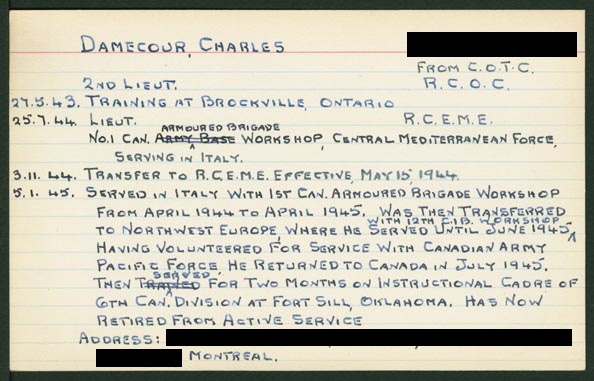 DAMECOUR, CHARLES
FROM C.O.T.C.
2ND LIEUT. R.C.O.C.
27.5.43. TRAINING AT BROCKVILLE, ONTARIO
25.7.44. LIEUT. R.C.E.M.E.
ARMOURED BRIGADE
NO.1 CAN. ARMY BASE WORKSHOP, CENTRAL MEDITERRANEAN FORCE,
SERVING IN ITALY.
3.11.44. TRANSFER TO R.C.E.M.E. EFFECTIVE, MAY 15, 1944.
5.1.45. SERVED IN ITALY WITH 1ST CAN. ARMOURED BRIGADE WORKSHOP
FROM APRIL 1944 TO APRIL 1945. WAS THEN TRANSFERRED
WITH 12TH C.I.B. WORKSHOP
TO NORTHWEST EUROPE WHERE HE SERVED UNTIL JUNE 1945
HAVING VOLUNTEERED FOR SERVICE WITH CANADIAN ARMY
PACIFIC FORCE, HE RETURNED TO CANADA IN JULY 1945.
SERVED
THEN TRAINED FOR TWO MONTHS ON INSTRUCTIONAL CADRE OF
6TH CAN. DIVISION AT FORT SILL, OKLAHOMA. HAS NOW
RETIRED FROM ACTIVE SERVICE
ADDRESS:
MONTREAL.